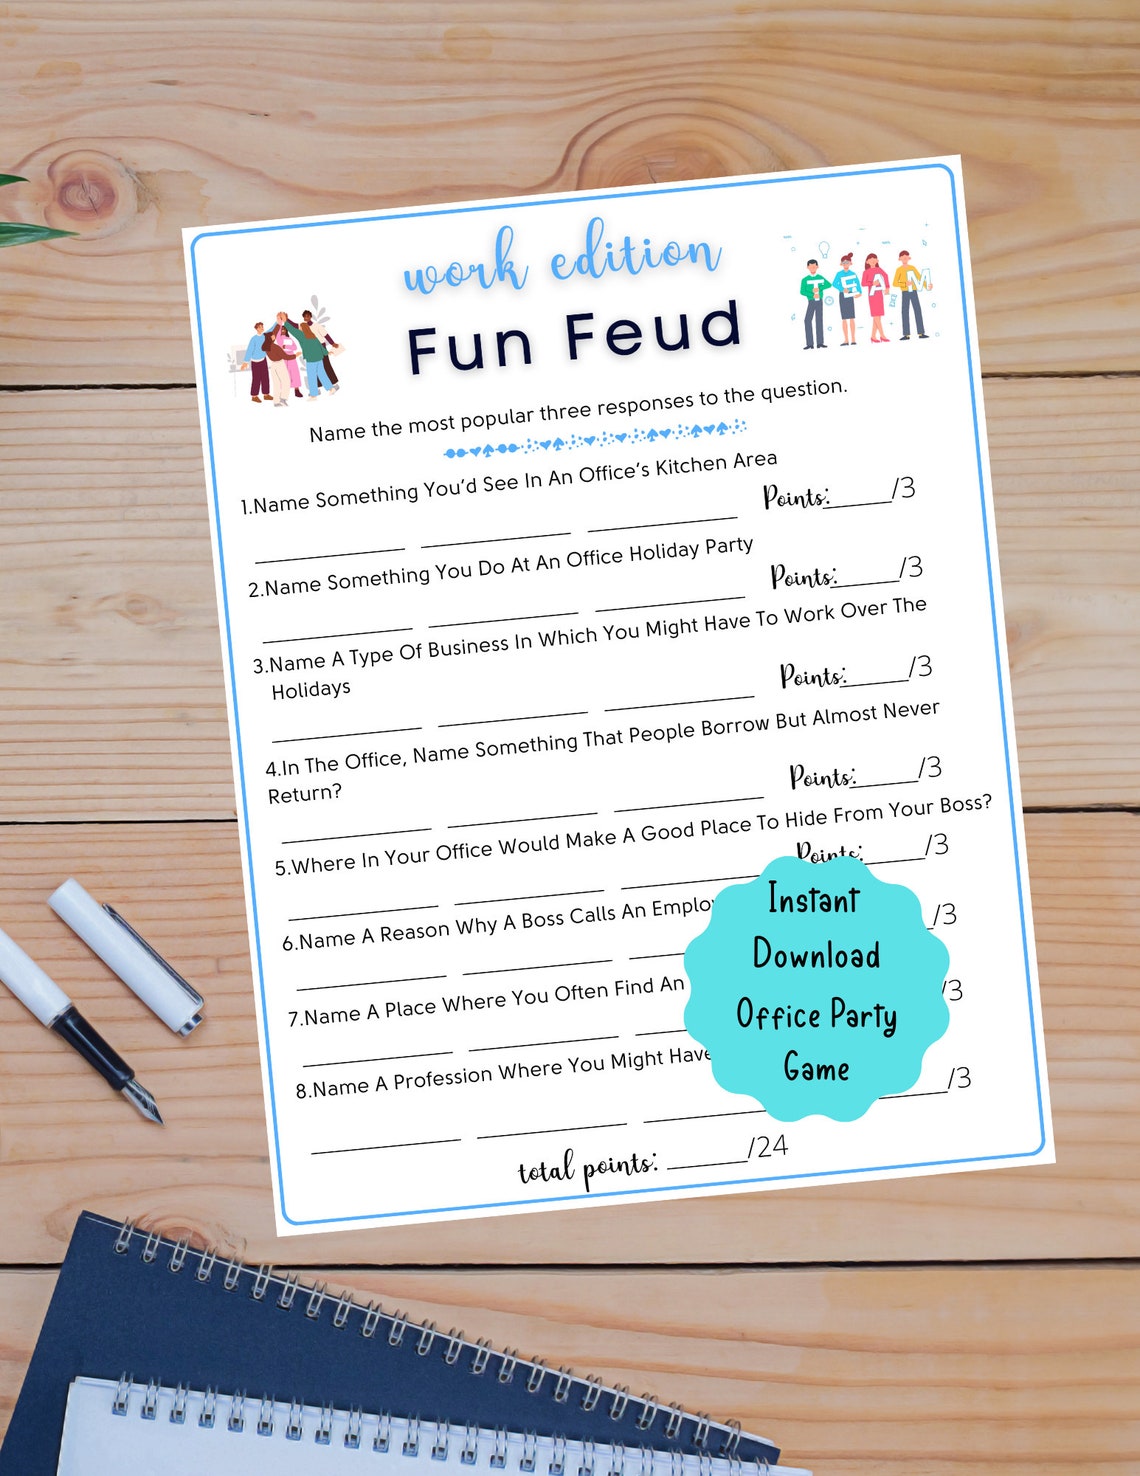 work edition
Fun Feud
TEAM
Name the most popular three responses to the question.
1.Name Something You'd See In An Office's Kitchen Area
Points:______/3
2.Name Something You Do At An Office Holiday Party
Points:______/3
3.Name A Type Of Business In Which You Might Have To Work Over The
Holidays
Points:______/3
4.In The Office, Name Something That People Borrow But Almost Never
Return?
Points:______/3
5.Where In Your Office Would Make A Good Place To Hide From Your Boss?
Points:______/3
6.Name A Reason Why A Boss Calls An
/3
7.Name A Place Where You Often Find An
/3
8.Name A Profession Where You Might Have
/3
total points: ______/24
Instant
Download
Office Party
Game